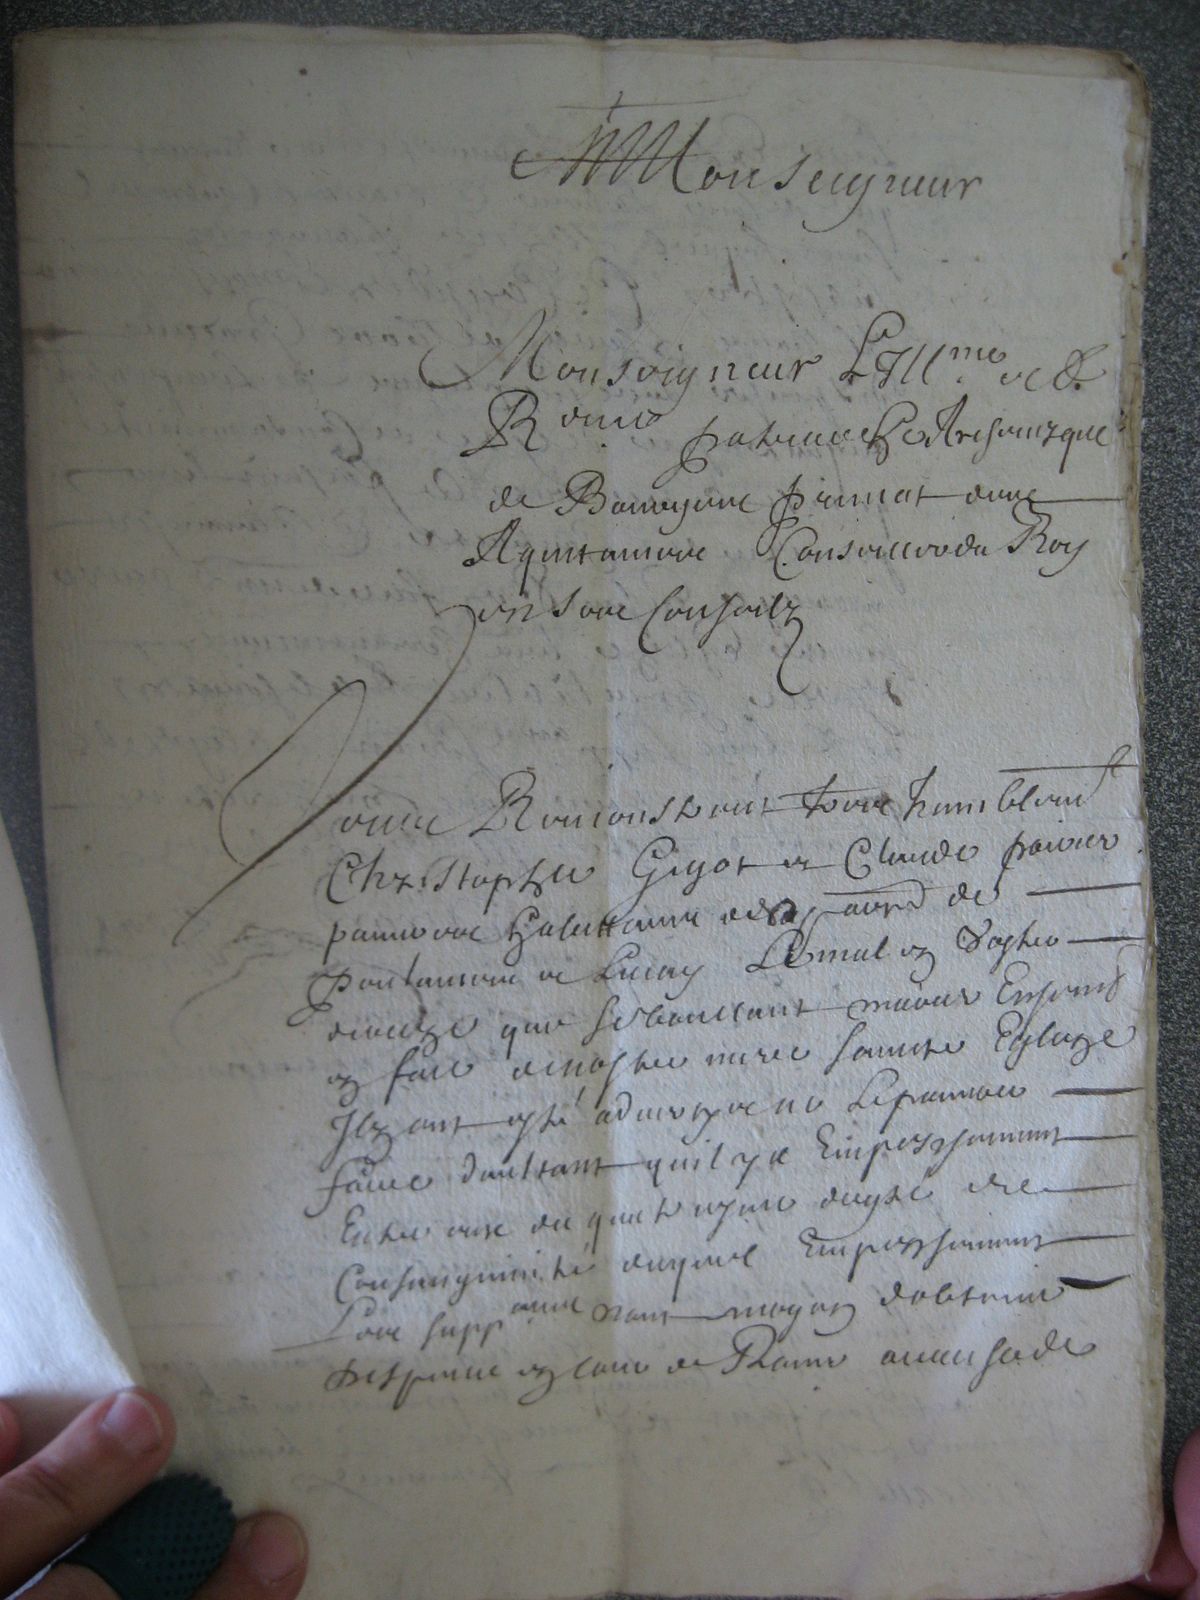 A Monseigneur
Monseigneur L'Ill.me et
R.ome patriarche Archevesque
de Bourges primat d
Aquitaine Conseiller du Roy
en son Conseilz
Vous Remonstrent tres humblemt
Christophe Guyot et Claude
pauvre habittans de la parr de
de Lucay Lemal disans
que souhaitant
en face de nostre mere saincte Eglize
Ilz ont esté adverty ne Le pouvoir
faire d'aultant quil y a Empeschement
Entre eux du quatriesme degré de
Consanguinité duquel Empeschement
Les supp.ans nont moyen d'obtenir
dispense en cour de Rome a cause de